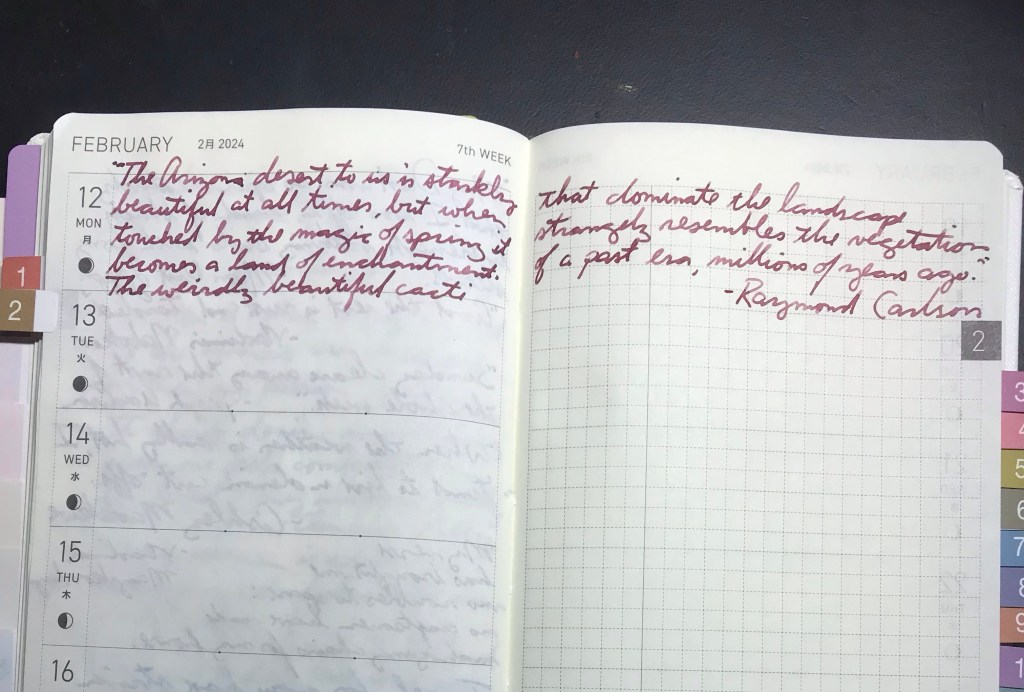 FEBRUARY 2月 2024 7th WEEK
12
MON
月
"The Arizona desert to us is starkly
beautiful at all times, but when
touched by the magic of spring it
becomes a land of enchantment.
The weirdly beautiful cacti
13
TUE
火
14
WED
水
15
THU
木
16
that dominate the landscape
strangely resembles the vegetation
of a past era, millions of years ago."
-Raymond Carlson
1
2
2
3
4
5
6
7
8
9
1